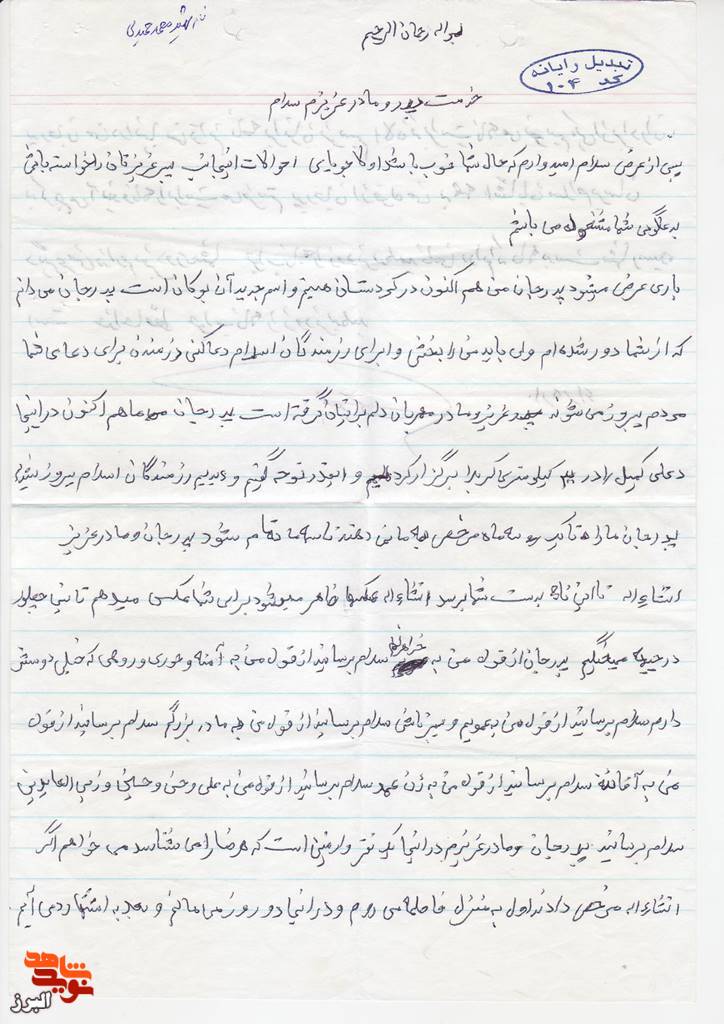 بسم اله رحمان الرحیم
نامه شهید محمد حمیدی
تبدیل رایانه
کد ۱۰۴
خدمت پدر و مادر عزیزم سلام
پس از عرض سلام امیدوارم که حال شما خوب باشد و اگر جویای احوالات اینجانب پسر عزیزتان را خواسته باشی
به دعاگویی شما مشغول می باشم
باری عرض میشود پدر جان من هم اکنون در کردستان هستیم و اسم جدید آن بوکان است پدر جان می دانم
که از شما دور شده ام ولی باید من را بخشی و برای رزمندگان اسلام دعا کنی رزمندن برای دعای شما
مردم پیروز می شوند پدر عزیز و مادر مهربان دلم براتان گرفته است پدر جان ما هم اکنون در اینجا
دعای کمیل را در کیلومتری کربلا برگزار کردیم و اینقدر نوحه گفتیم و دیدیم رزمندگان اسلام پیروز شدند
پدر جان ما را تا یک سه ماه مرخصی به ما نمی دهند تا سه ما تمام شود پدر جان و مادر عزیز
انشاءاله تا این نامه بدست شما برسد انشاءاله عکسها ظاهر میشود برای شما عکس میدهم تا ببینی چطور
در جبهه میجنگیم پدر جان از قول من به خواهرم سلام برسانید از قول من به آمنه و حوری و روحی که خیلی دوستش
دارم سلام برسانید از قول من به عمویم و سلام برسانید از قول من به مادر بزرگم سلام برسانید از قول
من به آقا سلام برسانید از قول من به زن عمو سلام برسانید از قول من به علی و حسن و حسین و زین العابدین
سلام برسانید پدر جان و مادر عزیزم در اینجا یک نفر ورامینی است که را می شناسد می خواهم اگر
انشاءاله مرخصی دادند اول به منزل می روم و در انجا دو روز می مانم و بعد به انجا می آیم
نوید شاهد
البرز